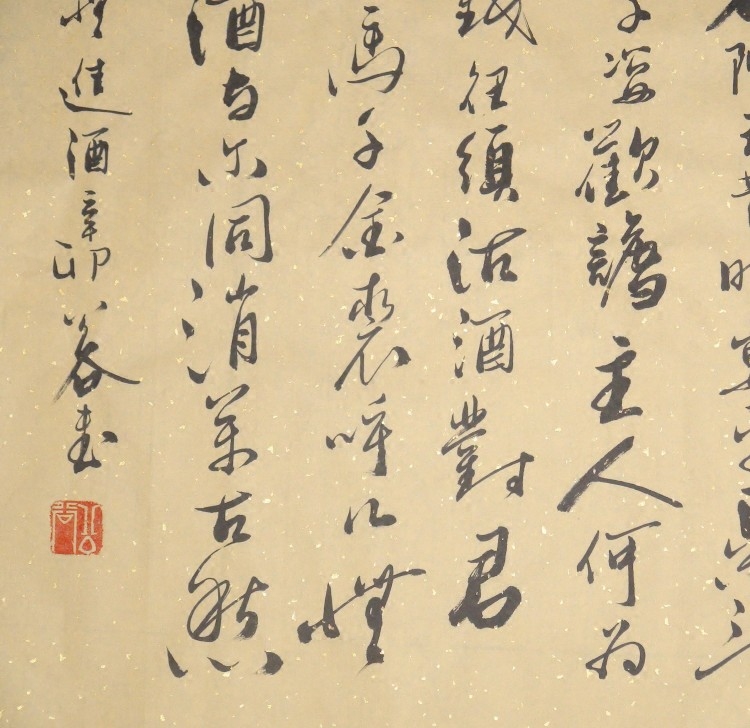 陳王昔時宴平樂
千恣歡謔主人何為
錢徑須沽酒對君
馬千金裘呼兒將
酒與爾同消萬古愁
將進酒辛卯書